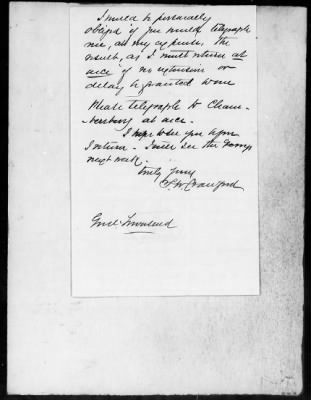 I would be personally
obliged if you would telegraph
me, at my expense, the
result, as I must return at
once if no extension or
delay be granted me
Please telegraph to Cham-
bersburg at once.
I hope to see you upon
I return. I will see the
next week.
Truly yours
S. W. Crawford
Genl. Townsend